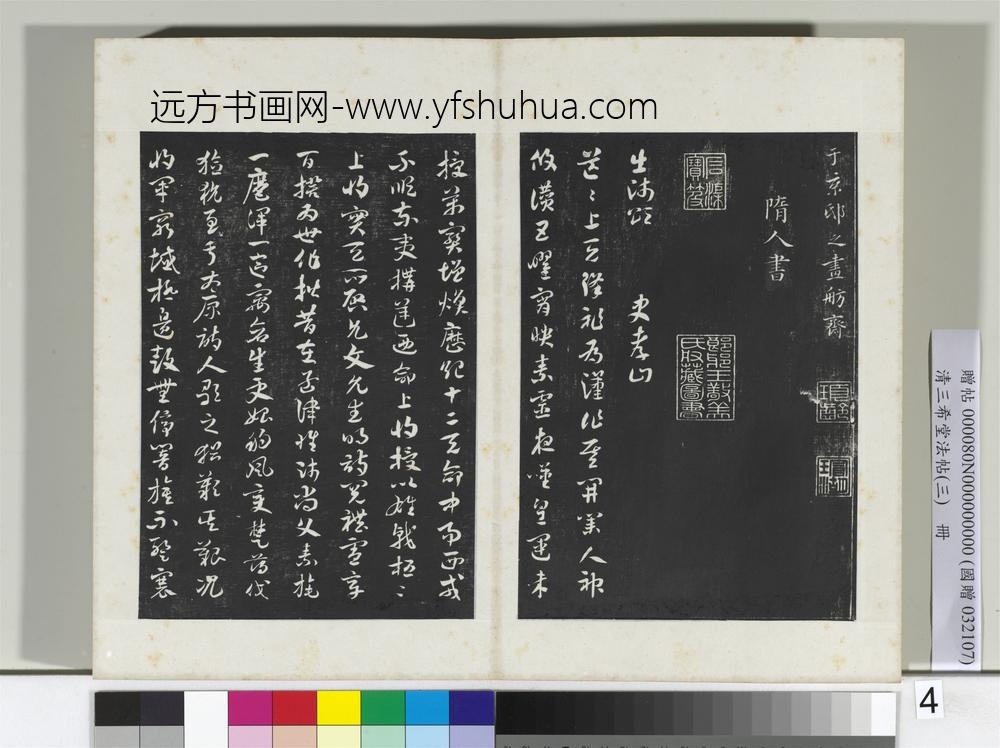 远方书画网-www.yfshuhua.com
于京邸之畫舫齋
隋人書
琅邪王敬美氏收藏圖書
出師頌 史孝山
茫〻上天降祚為漢作基開業人神
攸讚五曜霄映素靈夜嘆皇運未
授萬寶增煥歷紀十二天命中易西戎
不順東夷構逆迺命上將授以雄戟桓〻
上將寔天所啟允文允武明詩閱禮憲章
百揆為世作楷昔在孟津惟師尚父素旄
一麾渾一區宇蒼生更始朔風變楚薄伐
獫狁至于太原詩人歌之猶歎其艱況
將軍窮域極邊鼓無停響旗不蹔褰
贈帖 000080N000000000 (國贈 032107)
清三希堂法帖(三) 冊
4